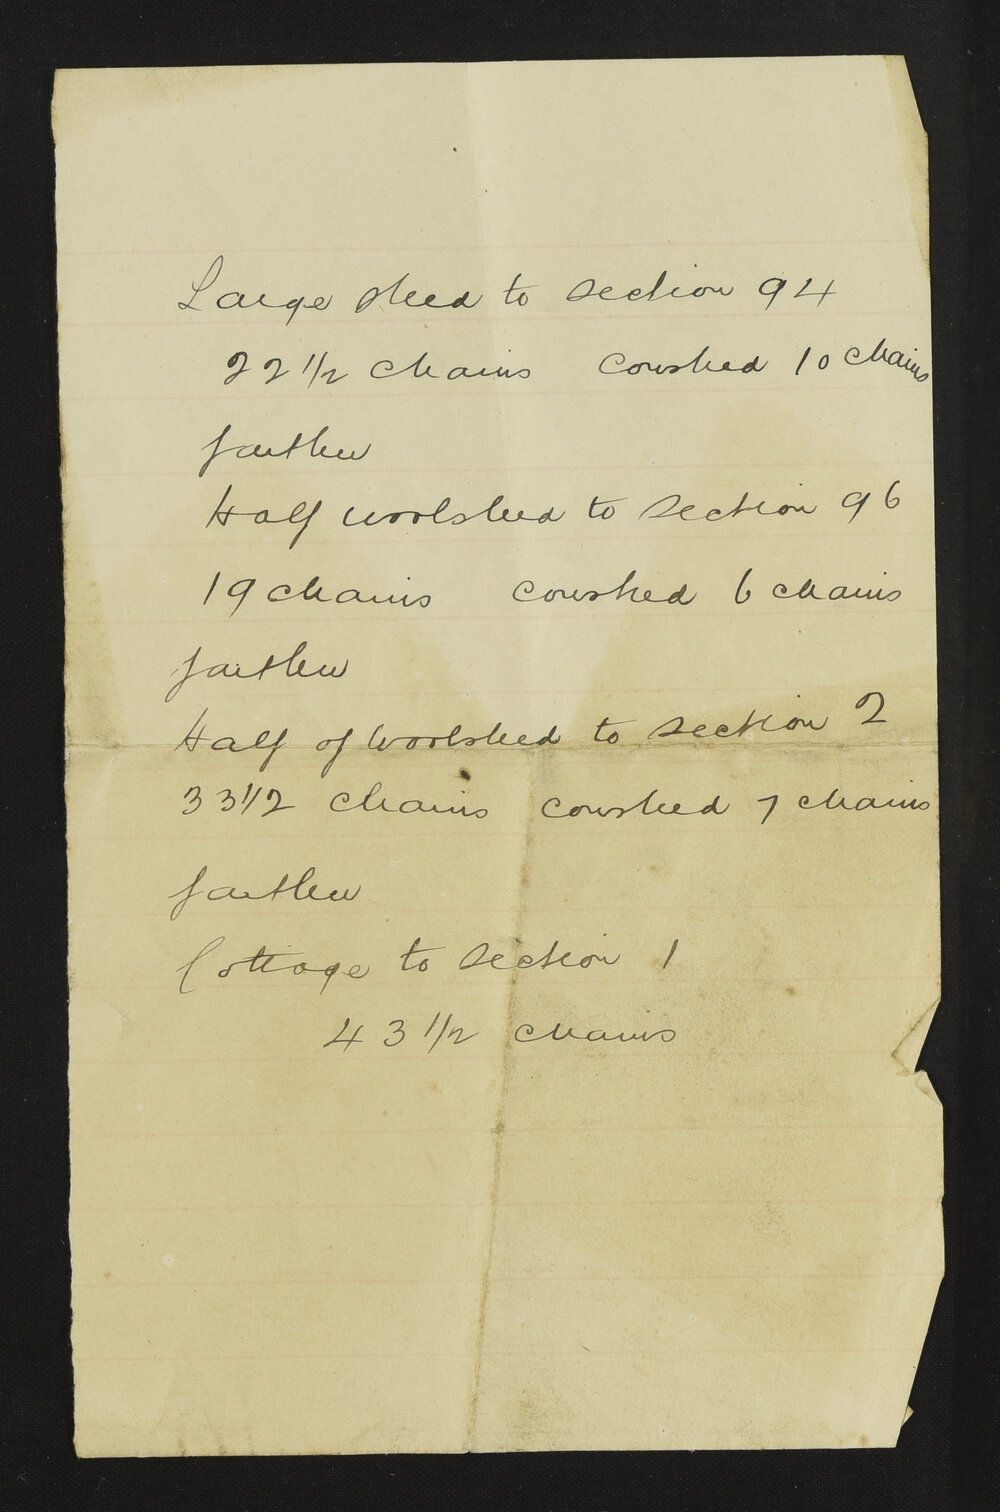 Large shed to section 94
22 1/2 chains cowshed 10 chains
farther
Half woolshed to section 96
19 chains cowshed 6 chains
farther
Half of Woolshed to section 2
33 1/2 chains cowshed 7 chains
farther
Cottage to section 1
43 1/2 chains